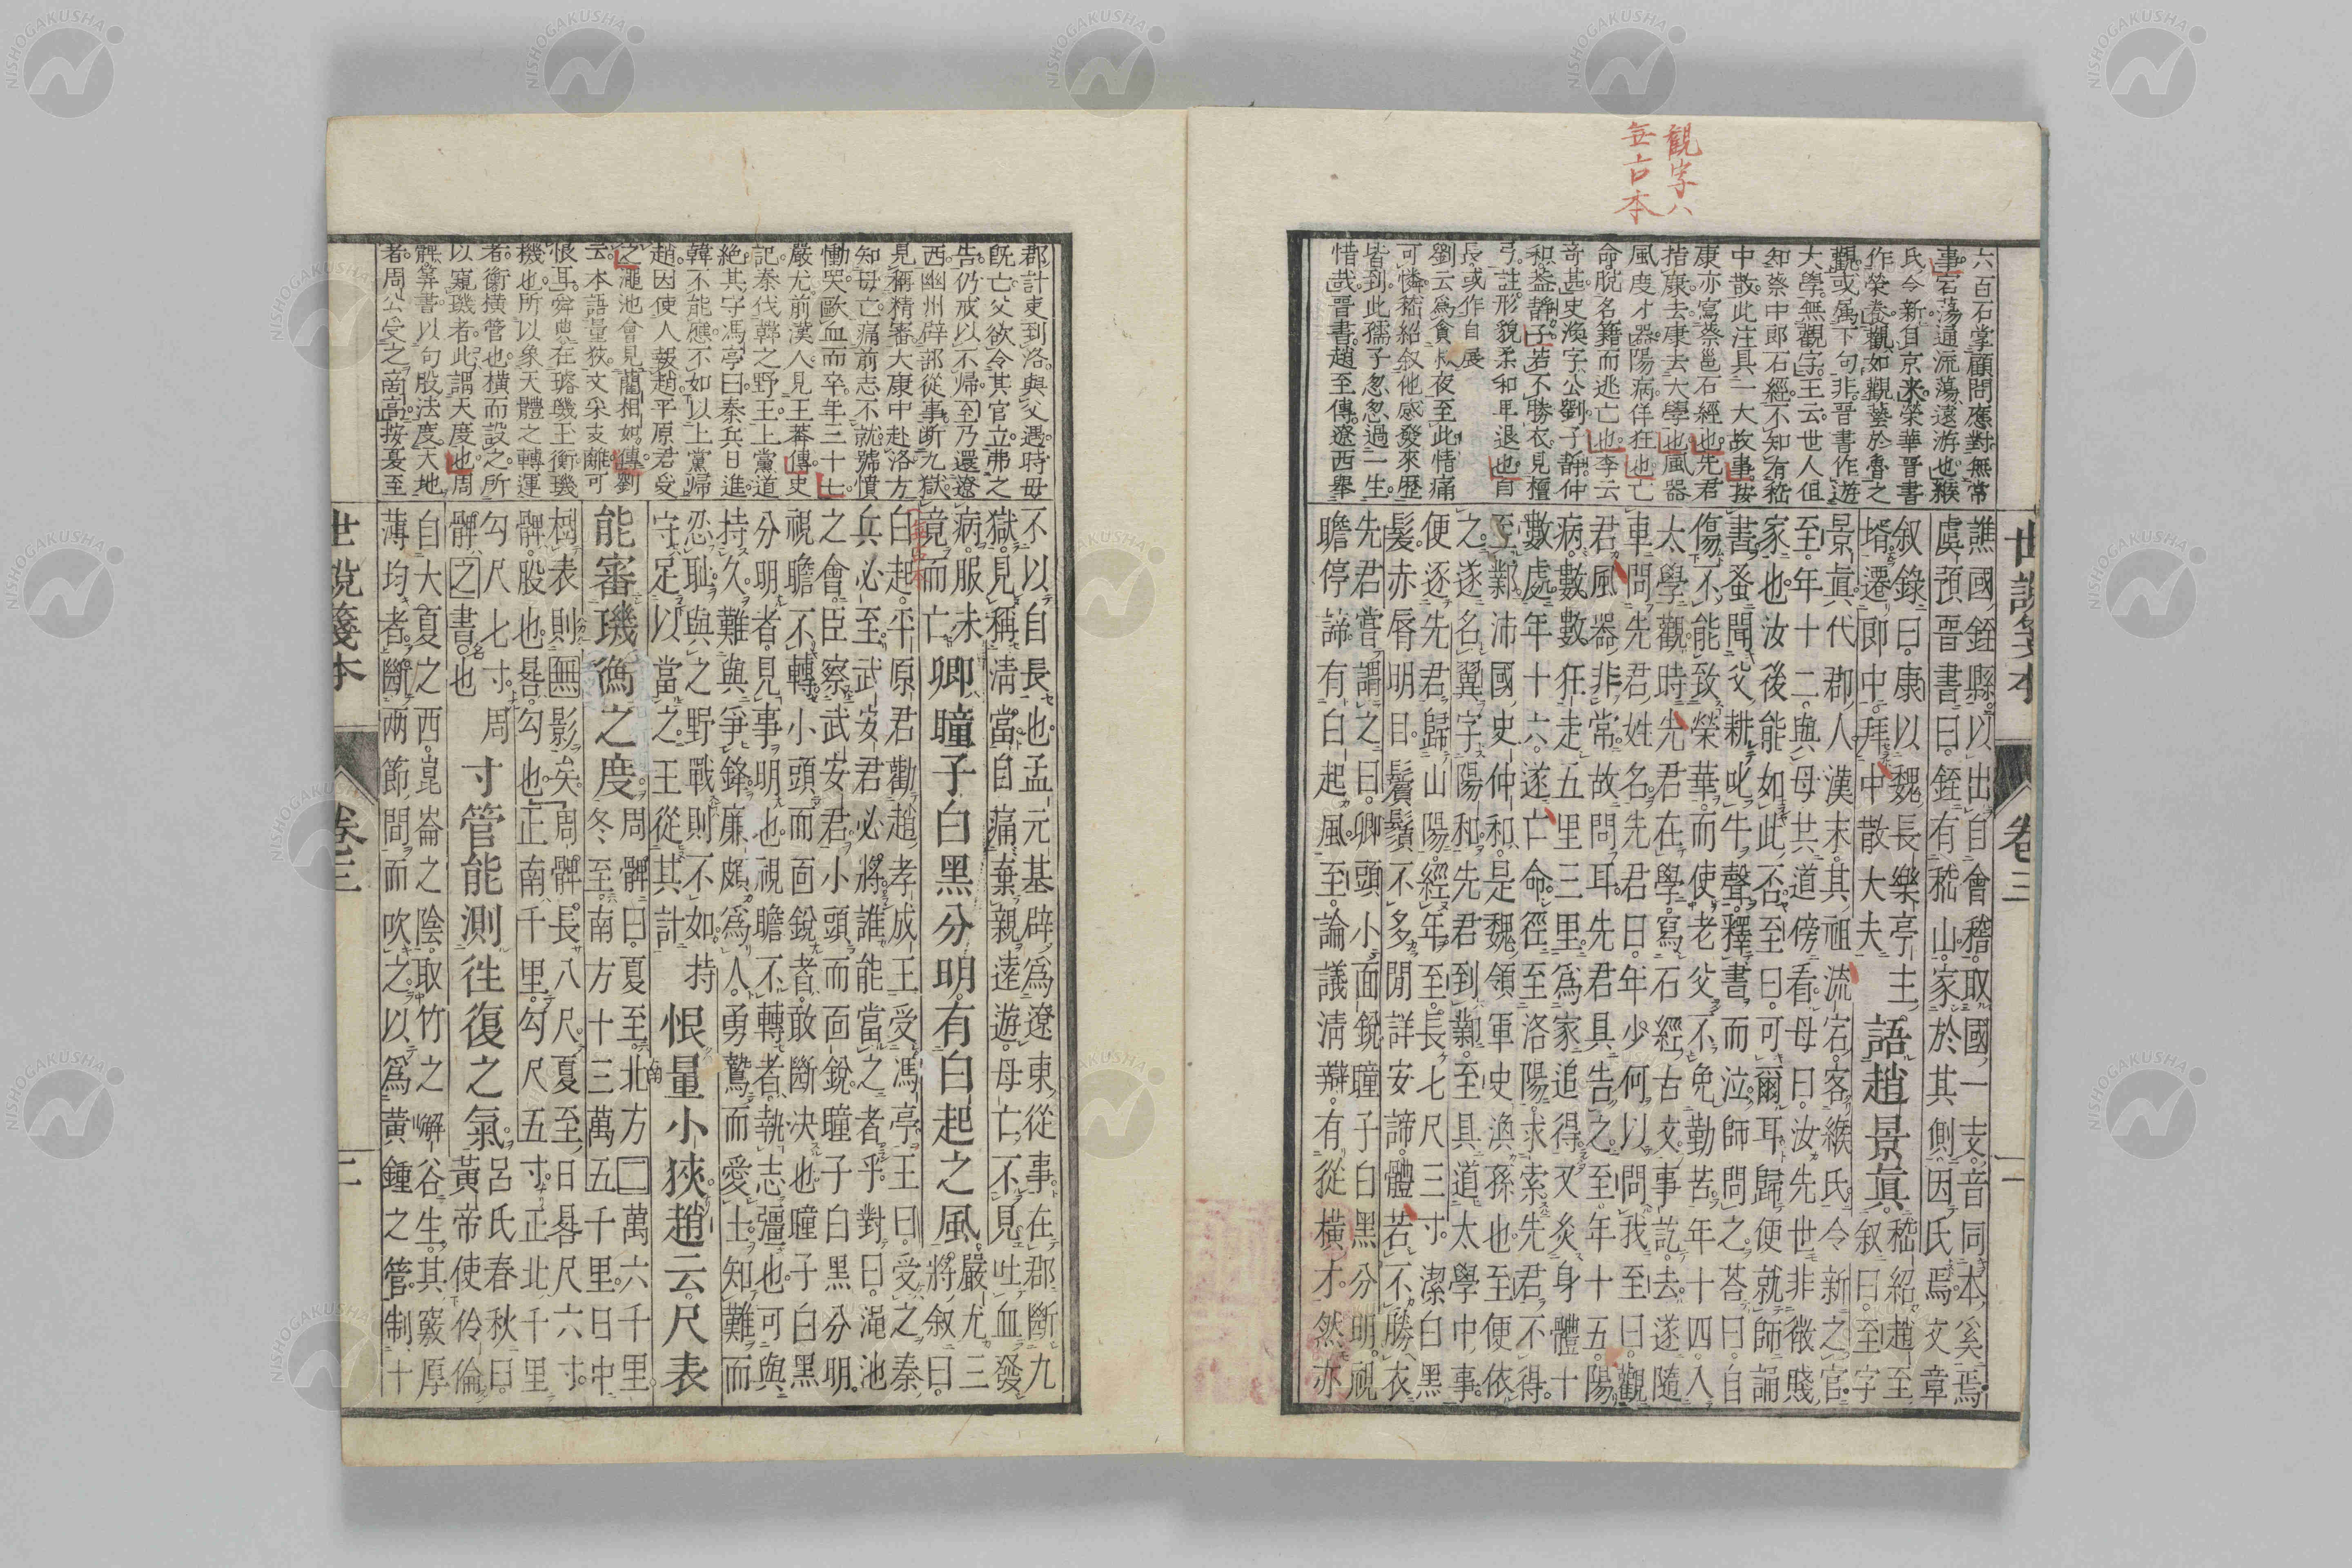 觀字ハ
無古本
六百石掌顧問應對無常
事宕蕩通流蕩遠游也緱
氏今新自京来榮華晋書
作榮養觀如觀藝於魯之
觀或属下句非晋書作遊
大學無觀字王云世人但
知蔡中郎石經不知有嵇
中散此注具一大故事按
康亦寫蔡邕石經也先君
指康去康去大學也風器
風度才器陽病佯狂也亡
命脱名籍而逃亡也李云
奇甚史渙字公劉子静仲
和葢静子若不勝衣見檀
弓註形貌柔和卑退也首
長或作自展
劉云為貪叔夜至此情痛
可憐嵇紹叙他感發來歷
皆到此孺子忽忽過一生
惜哉晋書趙至傳遼西舉
世說箋本 卷三 一
譙國銍縣以出自會稽取國一支音同本奚焉
虞預晋書曰銍有嵇山家於其側因氏焉文章
叙錄曰康以魏長樂亭主
壻遷郎中拜中散大夫
語趙景眞
嵇紹趙至
叙曰至字
景眞代郡人漢末其祖流宕客緱氏令新之官
至年十二與母共道傍看母曰汝先世非微賤
家也汝後能如此否至曰可爾耳歸便就師誦
書蚤聞父耕叱牛聲釋書而泣師問之荅曰自
傷不能致榮華而使老父不免勤苦年十四入
太學觀時先君在學寫石經古文事訖去遂隨
車問先君姓名先君曰年少何以問我至曰觀
君風器非常故問耳先君具告之至年十五陽
病數數狂走五里三里為家追得又灸身體十
數處年十六遂亡命徑至洛陽求索先君不得
至鄴沛國史仲和是魏領軍史渙孫也至便依
之遂名翼字陽和先君到鄴至具道太學中事
便逐先君歸山陽經年至長七尺三寸潔白黑
髮赤脣明目鬢鬚不多閒詳安諦體若不勝衣
先君嘗謂之曰卿頭小面銳瞳子白黑分明視
瞻停諦有白起風至論議清辯有從橫才然亦
郡計吏到洛與父遇時母
既亡父欲令其官立弗之
告仍戒以不帰至乃還遼
西幽州辟部從事断九獄
見稱精審大康中赴洛方
知母亡痛前志不就號憤
慟哭歐血而卒年三十七
嚴尤前漢人見王莽傳史
記秦伐韓之野王上黨道
絶其守馮亭曰秦兵日進
韓不能應不如以上黨帰
趙因使人報趙平原君受
之澠池會見藺相如傳劉
云本語量狄文采支離可
恨耳舜典在璿璣玉衡璣
機也所以象天體之轉運
者衡横管也横而設之所
以窺璣者此謂天度也周
髀筭書以句股法度天地
者周公受之商高按夏至
不以自長也孟元基辟為遼東從事在郡斷九
獄見稱清當自痛棄親遠遊母亡不見吐血發
病服未
竟而亡
卿瞳子白黑分明有白起之風
嚴尤三
將叙曰
白起平原君勸趙孝成王受馮亭王曰受之秦
兵必至武安君必將誰能當之者乎對曰澠池
之會臣察武安君小頭而面銳瞳子白黑分明
視瞻不轉小頭而面銳者敢斷決也瞳子白黑
分明者見事明也視瞻不轉者執志彊也可與
持久難與爭鋒廉頗為人勇鷙而愛士知難而
忍耻與之野戰則不如持
守足以當之王從其計
恨量小狹趙云尺表
能審璣衡之度
周髀曰夏至北方二萬六千里
冬至南方十三萬五千里日中
樹表則無影矣周髀長八尺夏至日晷尺六寸
髀股也晷勾也正南千里勾尺五寸正北千里
勾尺七寸周
髀之書名也
寸管能測往復之氣
呂氏春秋曰
黃帝使伶倫
自大夏之西崑崙之陰取竹之嶰谷生其竅厚
薄均者斷兩節間而吹之以為黃鍾之管制十
世說箋本 卷三 二